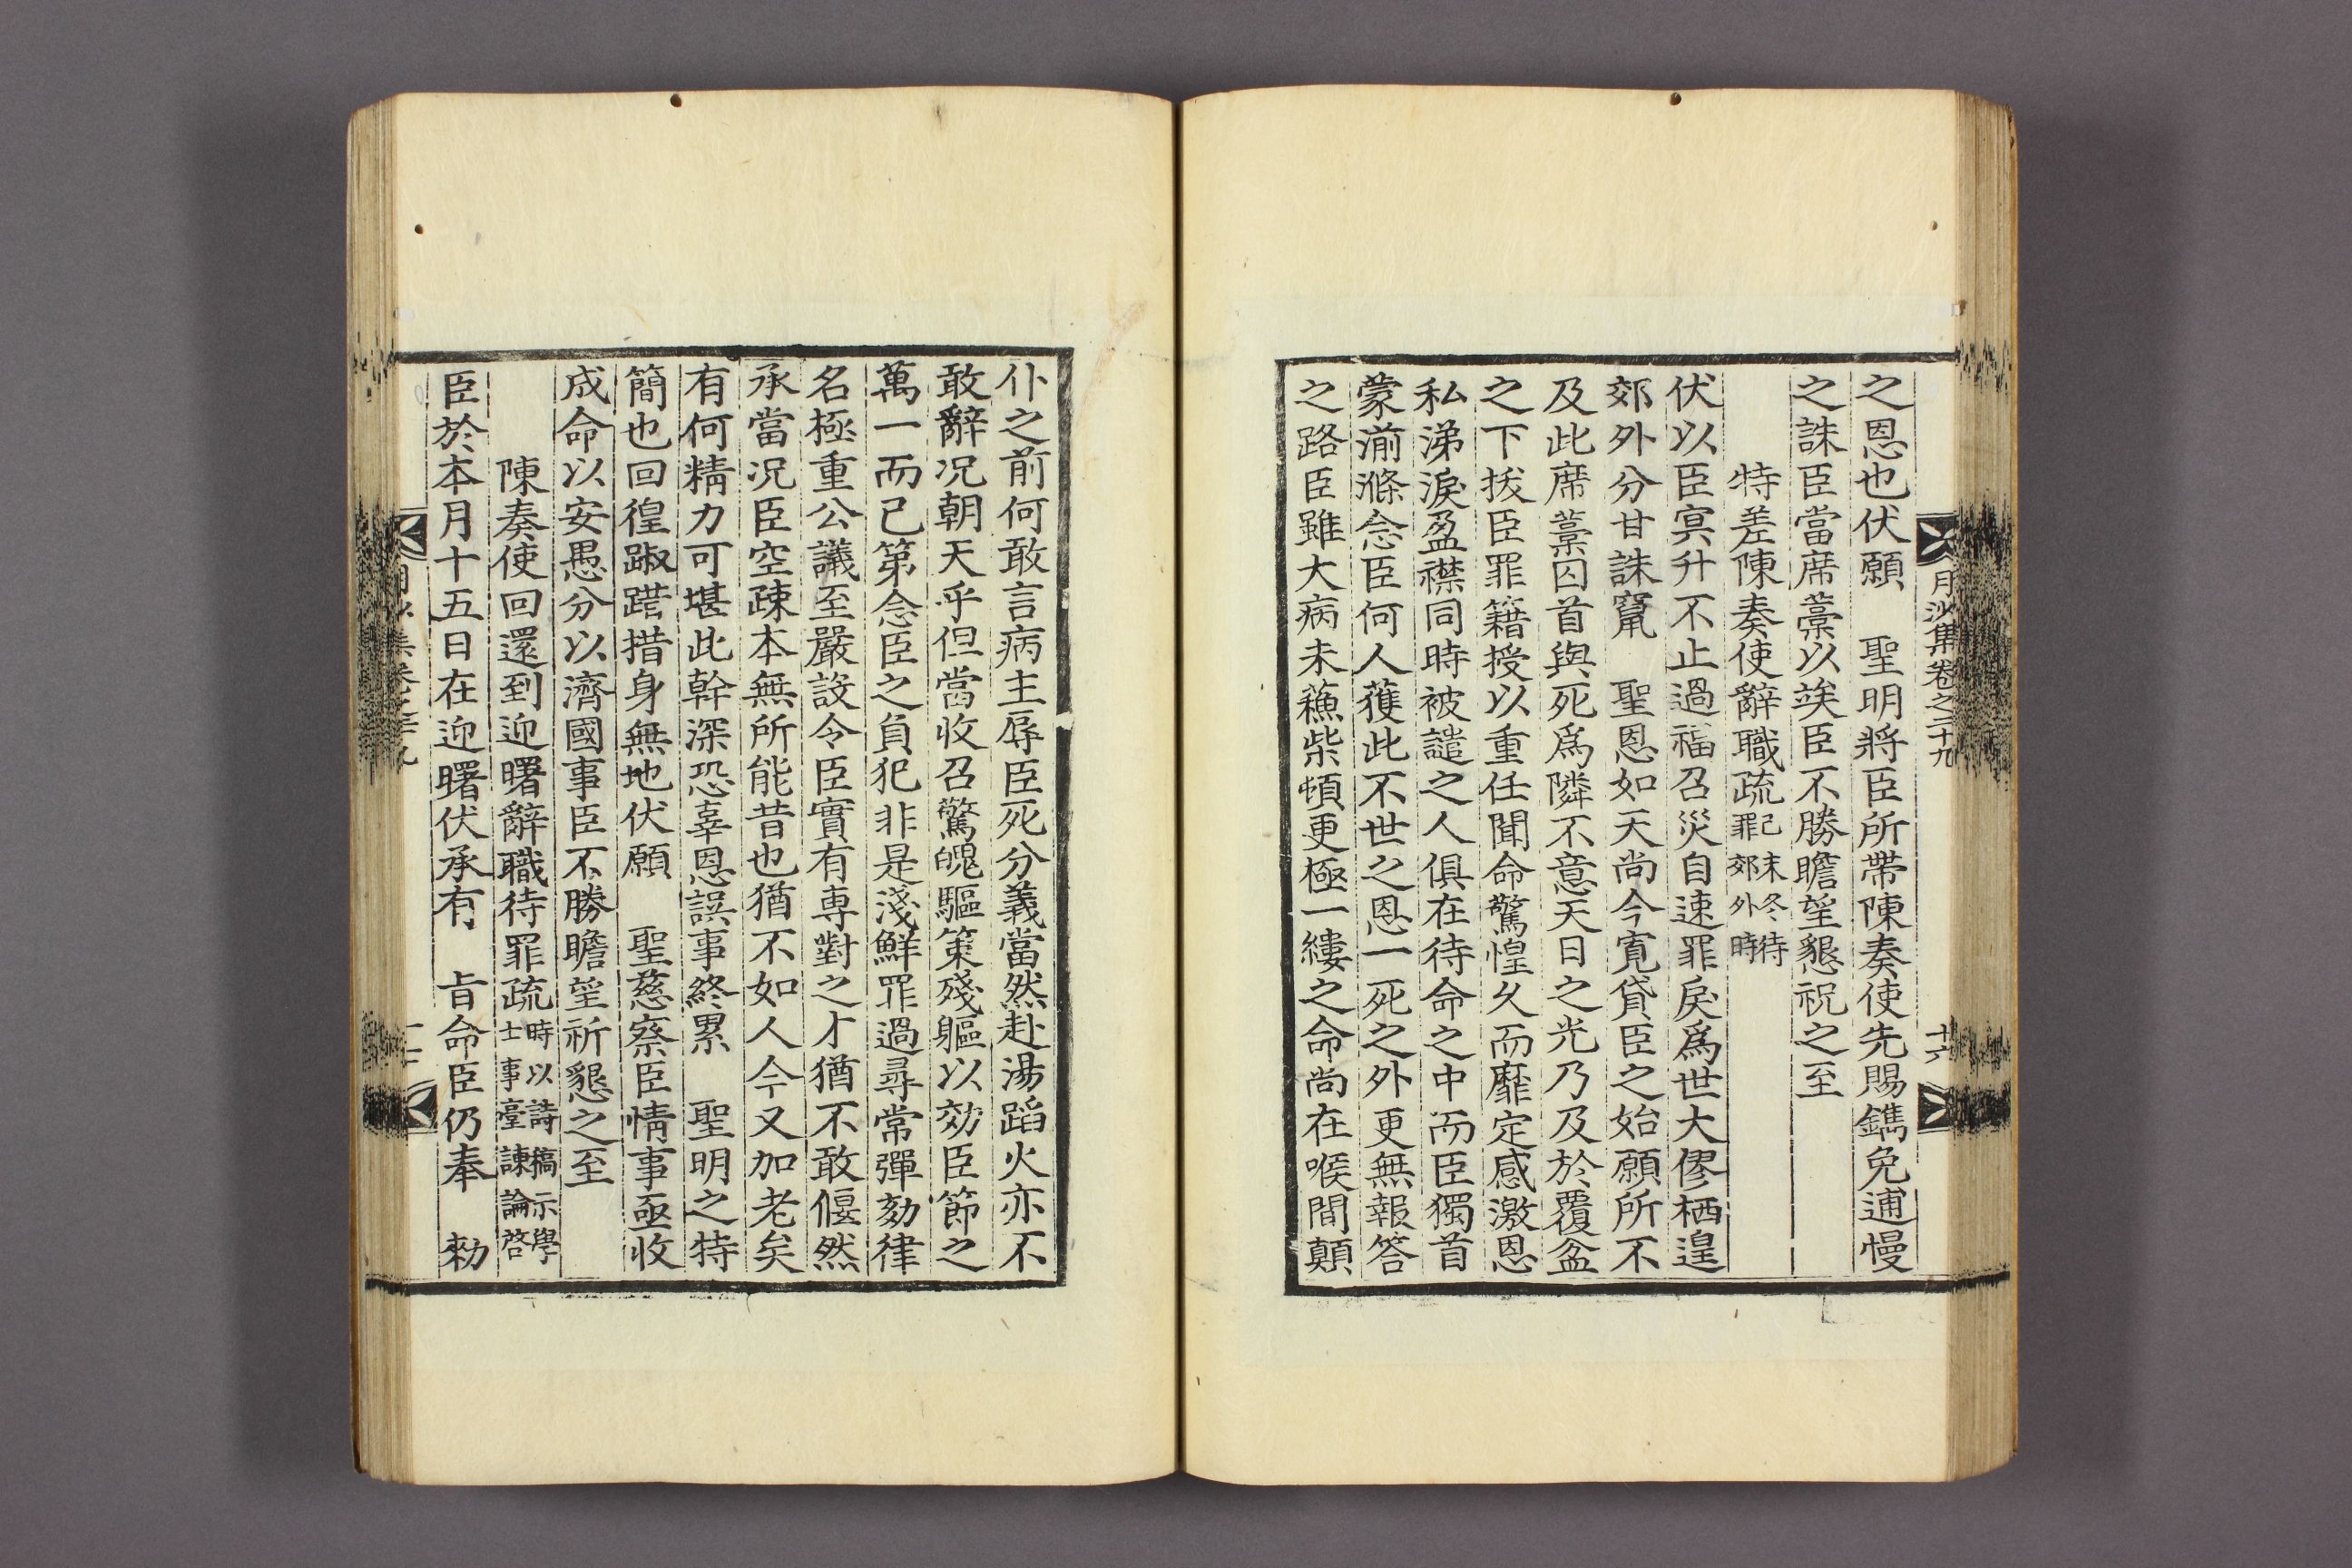 月沙集卷之二十九
十六
之恩也伏願 聖明將臣所帶陳奏使先賜鐫免逋慢
之誅臣當席藁以竢臣不勝瞻望懇祝之至
特差陳奏使辭職疏己未冬待罪郊外時
伏以臣㝠升不止過福召災自速罪戾爲世大僇栖遑
郊外分甘誅竄 聖恩如天尚今寬貸臣之始願所不
及此席藁囚首與死爲隣不意天日之光乃及於覆盆
之下拔臣罪籍授以重任聞命驚惶久而靡定感激恩
私涕淚盈襟同時被譴之人俱在待命之中而臣獨首
蒙湔滌念臣何人獲此不世之恩一死之外更無報答
之路臣雖大病未蘓柴頓更極一縷之命尚在喉間顛
仆之前何敢言病主辱臣死分義當然赴湯蹈火亦不
敢辭况朝天乎但當收召驚魄驅策殘軀以効臣節之
萬一而已第念臣之負犯非是淺鮮罪過尋常彈劾律
名極重公議至嚴設令臣實有專對之才猶不敢偃然
承當况臣空疎本無所能昔也猶不如人今又加老矣
有何精力可堪此幹深恐辜恩誤事終累 聖明之特
簡也回徨踧踖措身無地伏願 聖慈察臣情事亟收
成命以安愚分以濟國事臣不勝瞻望祈懇之至
陳奏使回還到迎曙辭職待罪疏時以詩稿示學士事臺諫論啓
臣於本月十五日在迎曙伏承有 旨命臣仍奉 勑